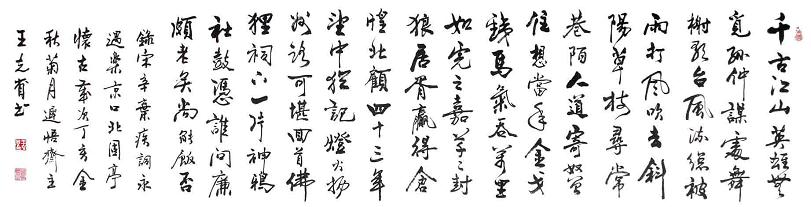 千古江山英雄無
覓孫仲謀處舞
榭歌台風流總被
雨打風吹去斜
陽草樹尋常
巷陌人道寄奴曾
住想當年金戈
鐵馬氣吞萬里
如虎元嘉草草封
狼居胥贏得倉
惶北顧四十三年
望中猶記燈火揚
州路可堪回首佛
狸祠下一片神鴉
社鼓憑誰問廉
頗老矣尚能飯否
錄宋辛棄疾詞永
遇樂京口北固亭
懷古歲次丁亥金
秋菊月遲悟齋主
王克書